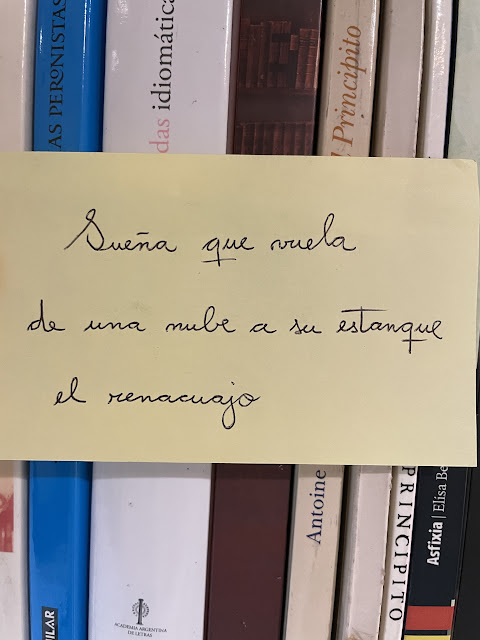 AS PERONISTAS
das idiomática
Principito
Sueña que vuela
de una nube a su estanque
el renacuajo
ILAR
ACADEMIA ARGENTINA
DE LETRAS
Antoine
PRINCIPITO
Asfixia | Elisa Be